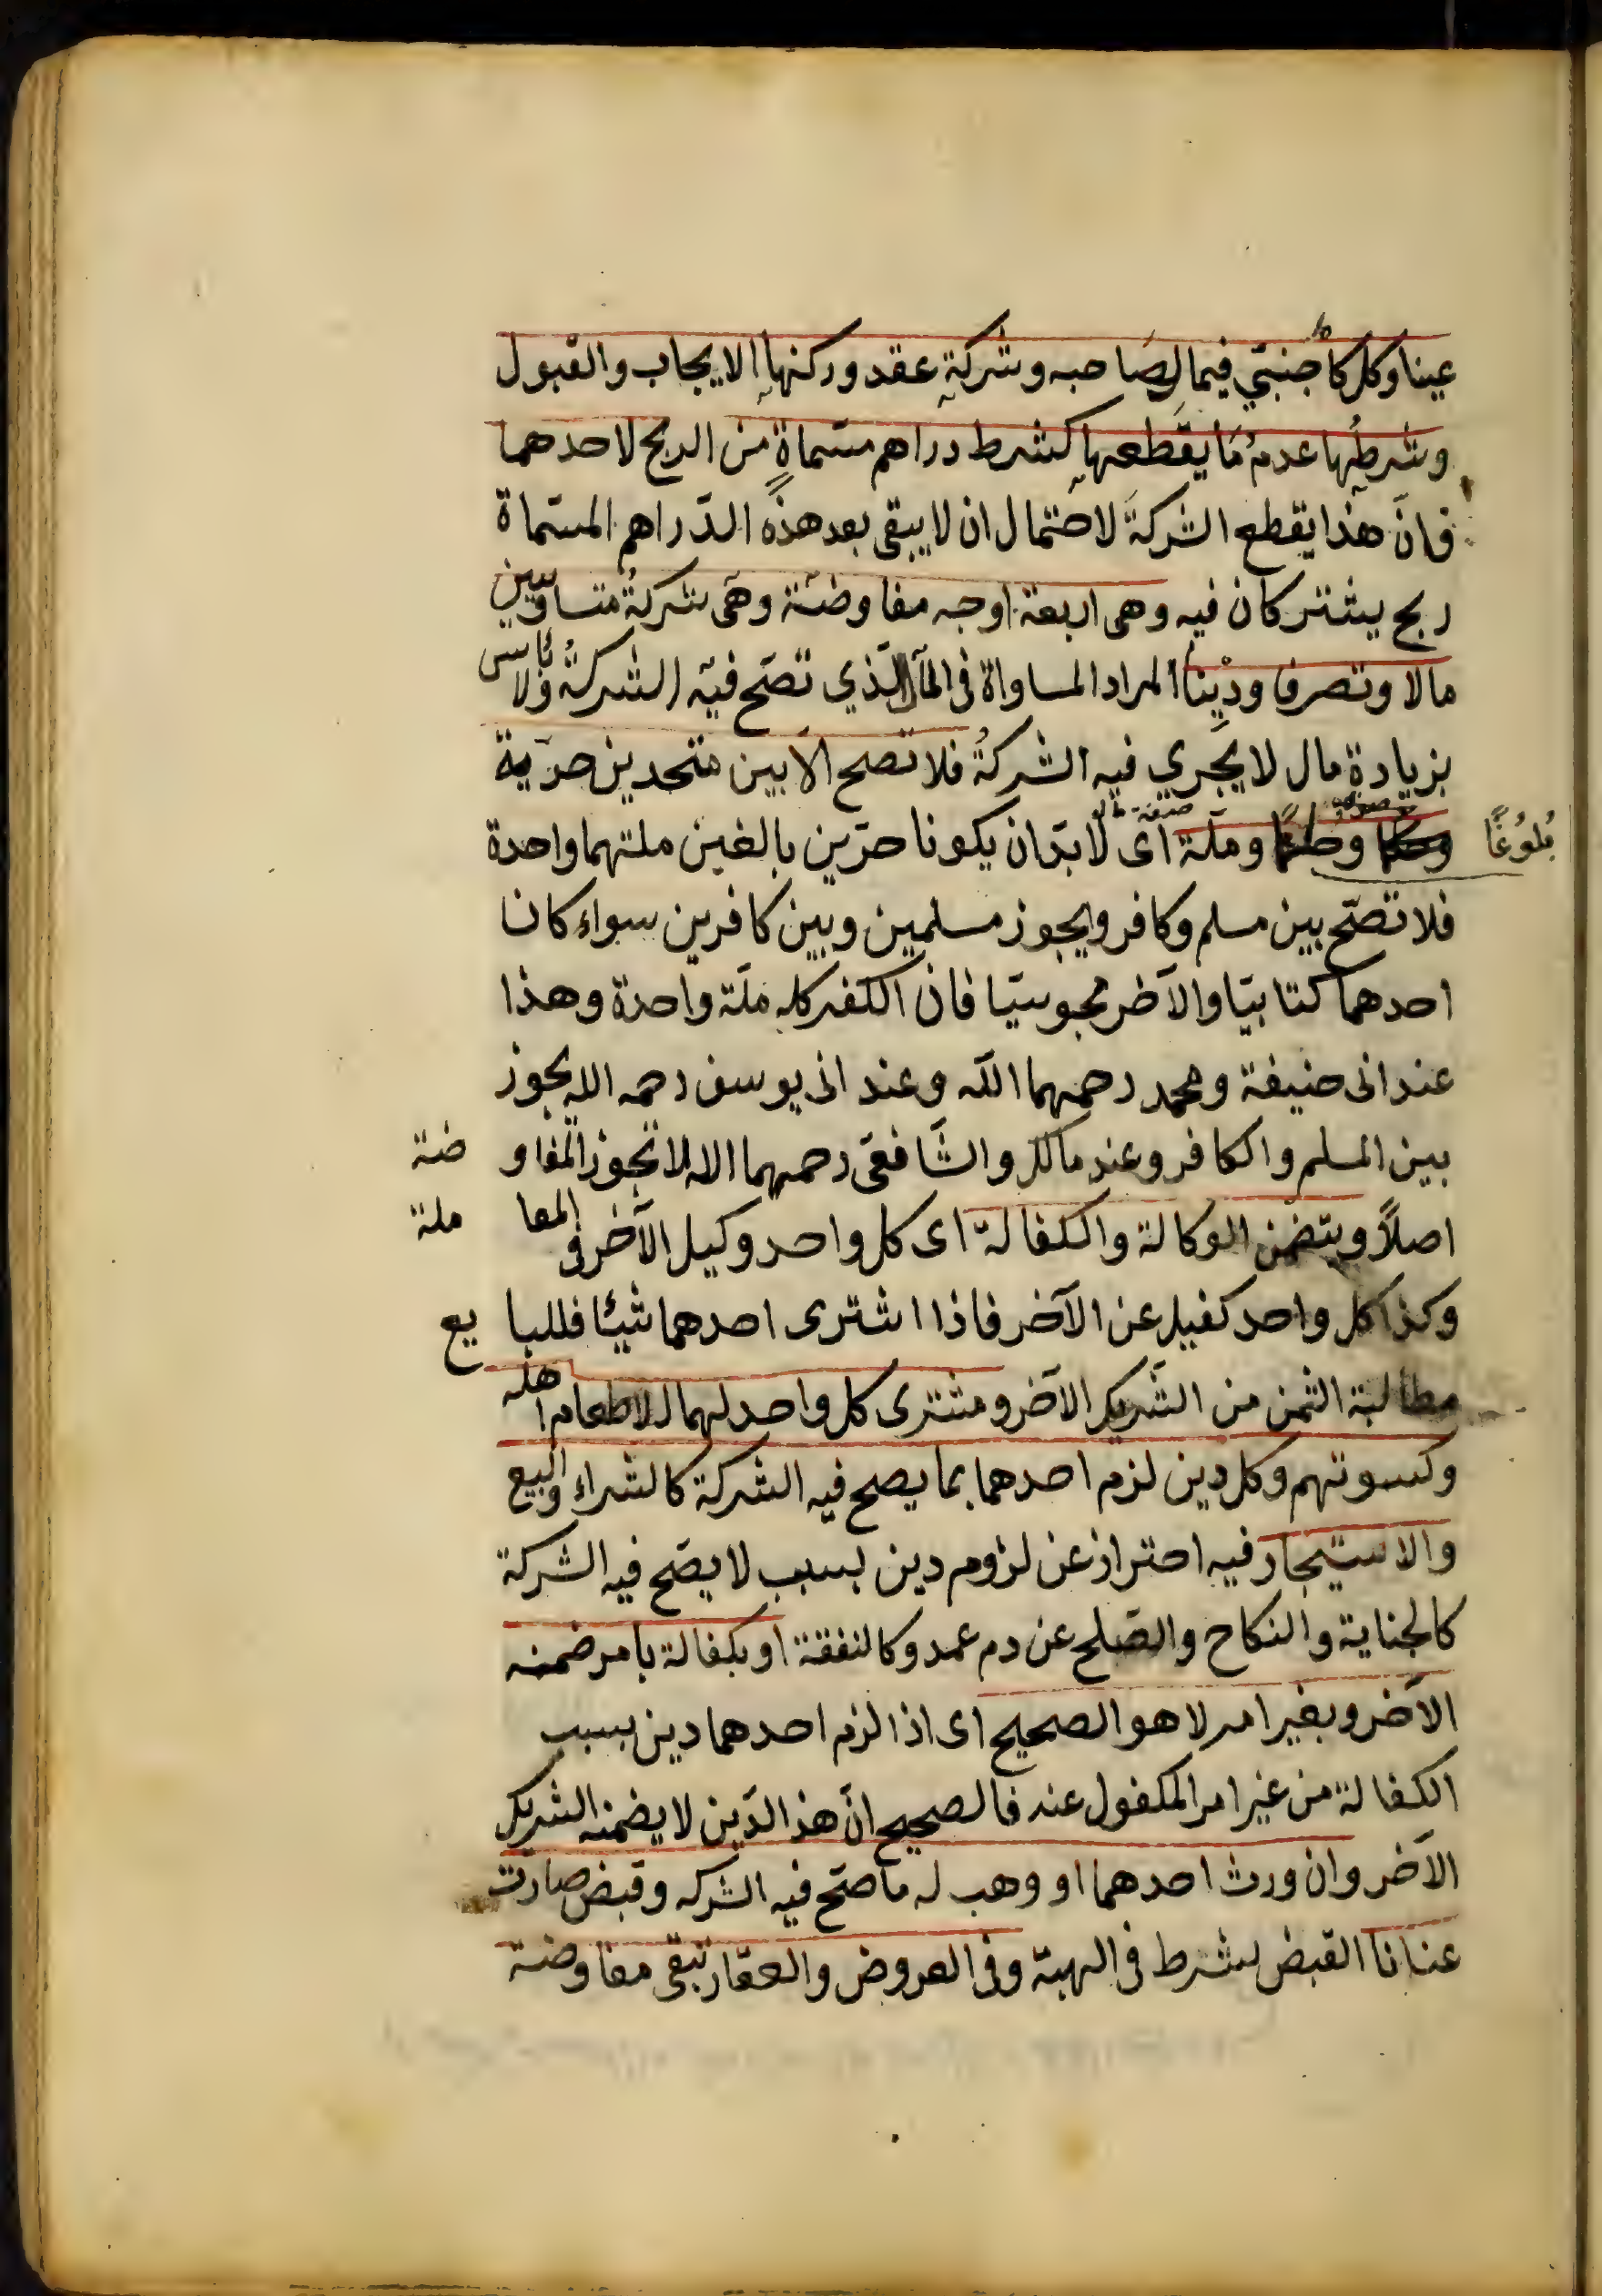 عينا وكل كأجنبيّ فيما لصاحبه وشركة عقد وركنها الايجاب والقبول
وشرطها عدم ما يقطعها كشرط دراهم مسمّاةٍ من الربح لاحدهما
فانّ هذا يقطع الشركةَ لاحتمال ان لا يبقى بعد هذه الدّراهم المسمّاة
ربح يشتركان فيه وهى اربعة اوجه مفاوضة وهى شركةُ متساويين
مالا وتصرفا ودَيناً المراد المساواة فى المال الّذي تصّح فيه الشركةُ ولا بأس
بزيادة مال لا يجري فيه الشركةُ فلا تصح الا بين متحدين حرّية
وملّة اى لا بدّ ان يكونا حرّين بالغين ملتهما واحدة
بُلُوغًا
فلا تصّح بين مسلم وكافر ويجوز مسلمين وبين كافرين سواء كانا
احدهما كتابيّا والآخر مجوسيّا فانّ الكفر كله ملّة واحدة وهذا
عند ابى حنيفة ومحمد رحمهما الله وعند ابى يوسف رحمه الله يجوز
بين المسلم والكافر وعند مالك والشّافعى رحمهما الله لا تجوز المفاوضة
اصلاً ويتضمن الوكالة والكفالة اى كل واحد وكيل الآخر فى المعاملة
وكذا كل واحد كفيل عن الآخر فاذا اشترى احدهما شيئا فللبايع
مطالبة الثمن من الشّريك الآخر ومشترى كل واحد لهما الا طعام اهله
وكسوتهم وكل دين لزم احدهما بما يصح فيه الشركة كالشراء والبيع
والاستيجار فيه احتراز عن لزوم دين بسبب لا يصّح فيه الشركة
كالجناية والنكاح والصّلح عن دم عمد وكالنفقة او بكفالة بامر ضمنه
الآخر وبغير امر لا هو الصحيح اى اذا لزم احدهما دين بسبب
الكفالة من غير امر المكفول عنه فالصحيح انّ هذ الدّين لا يضمنه الشريك
الآخر وان ورث احدهما او وهب له ما صحّ فيه الشركه وقبض صارت
عنانا القبض يشترط فى الهبة وفى العروض والعقار تبقى مفاوضة